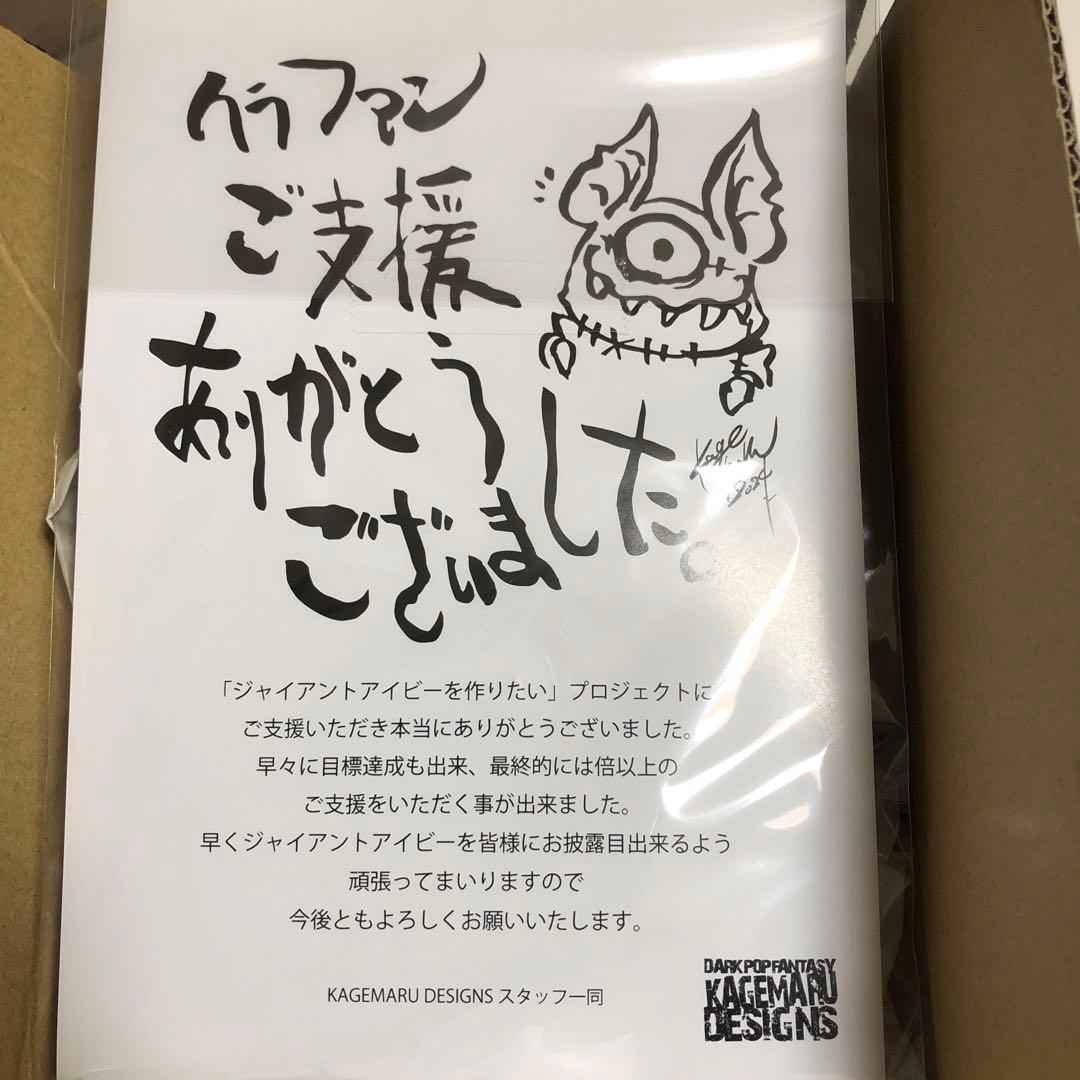 クラファン
ご支援
ありがとう
ございました。
2024
「ジャイアントアイビーを作りたい」プロジェクトに
ご支援いただき本当にありがとうございました。
早々に目標達成も出来、最終的には倍以上の
ご支援をいただく事が出来ました。
早くジャイアントアイビーを皆様にお披露目出来るよう
頑張ってまいりますので
今後ともよろしくお願いいたします。
KAGEMARU DESIGNS スタッフ一同
DARK POP FANTASY
KAGEMARU
DESIGNS